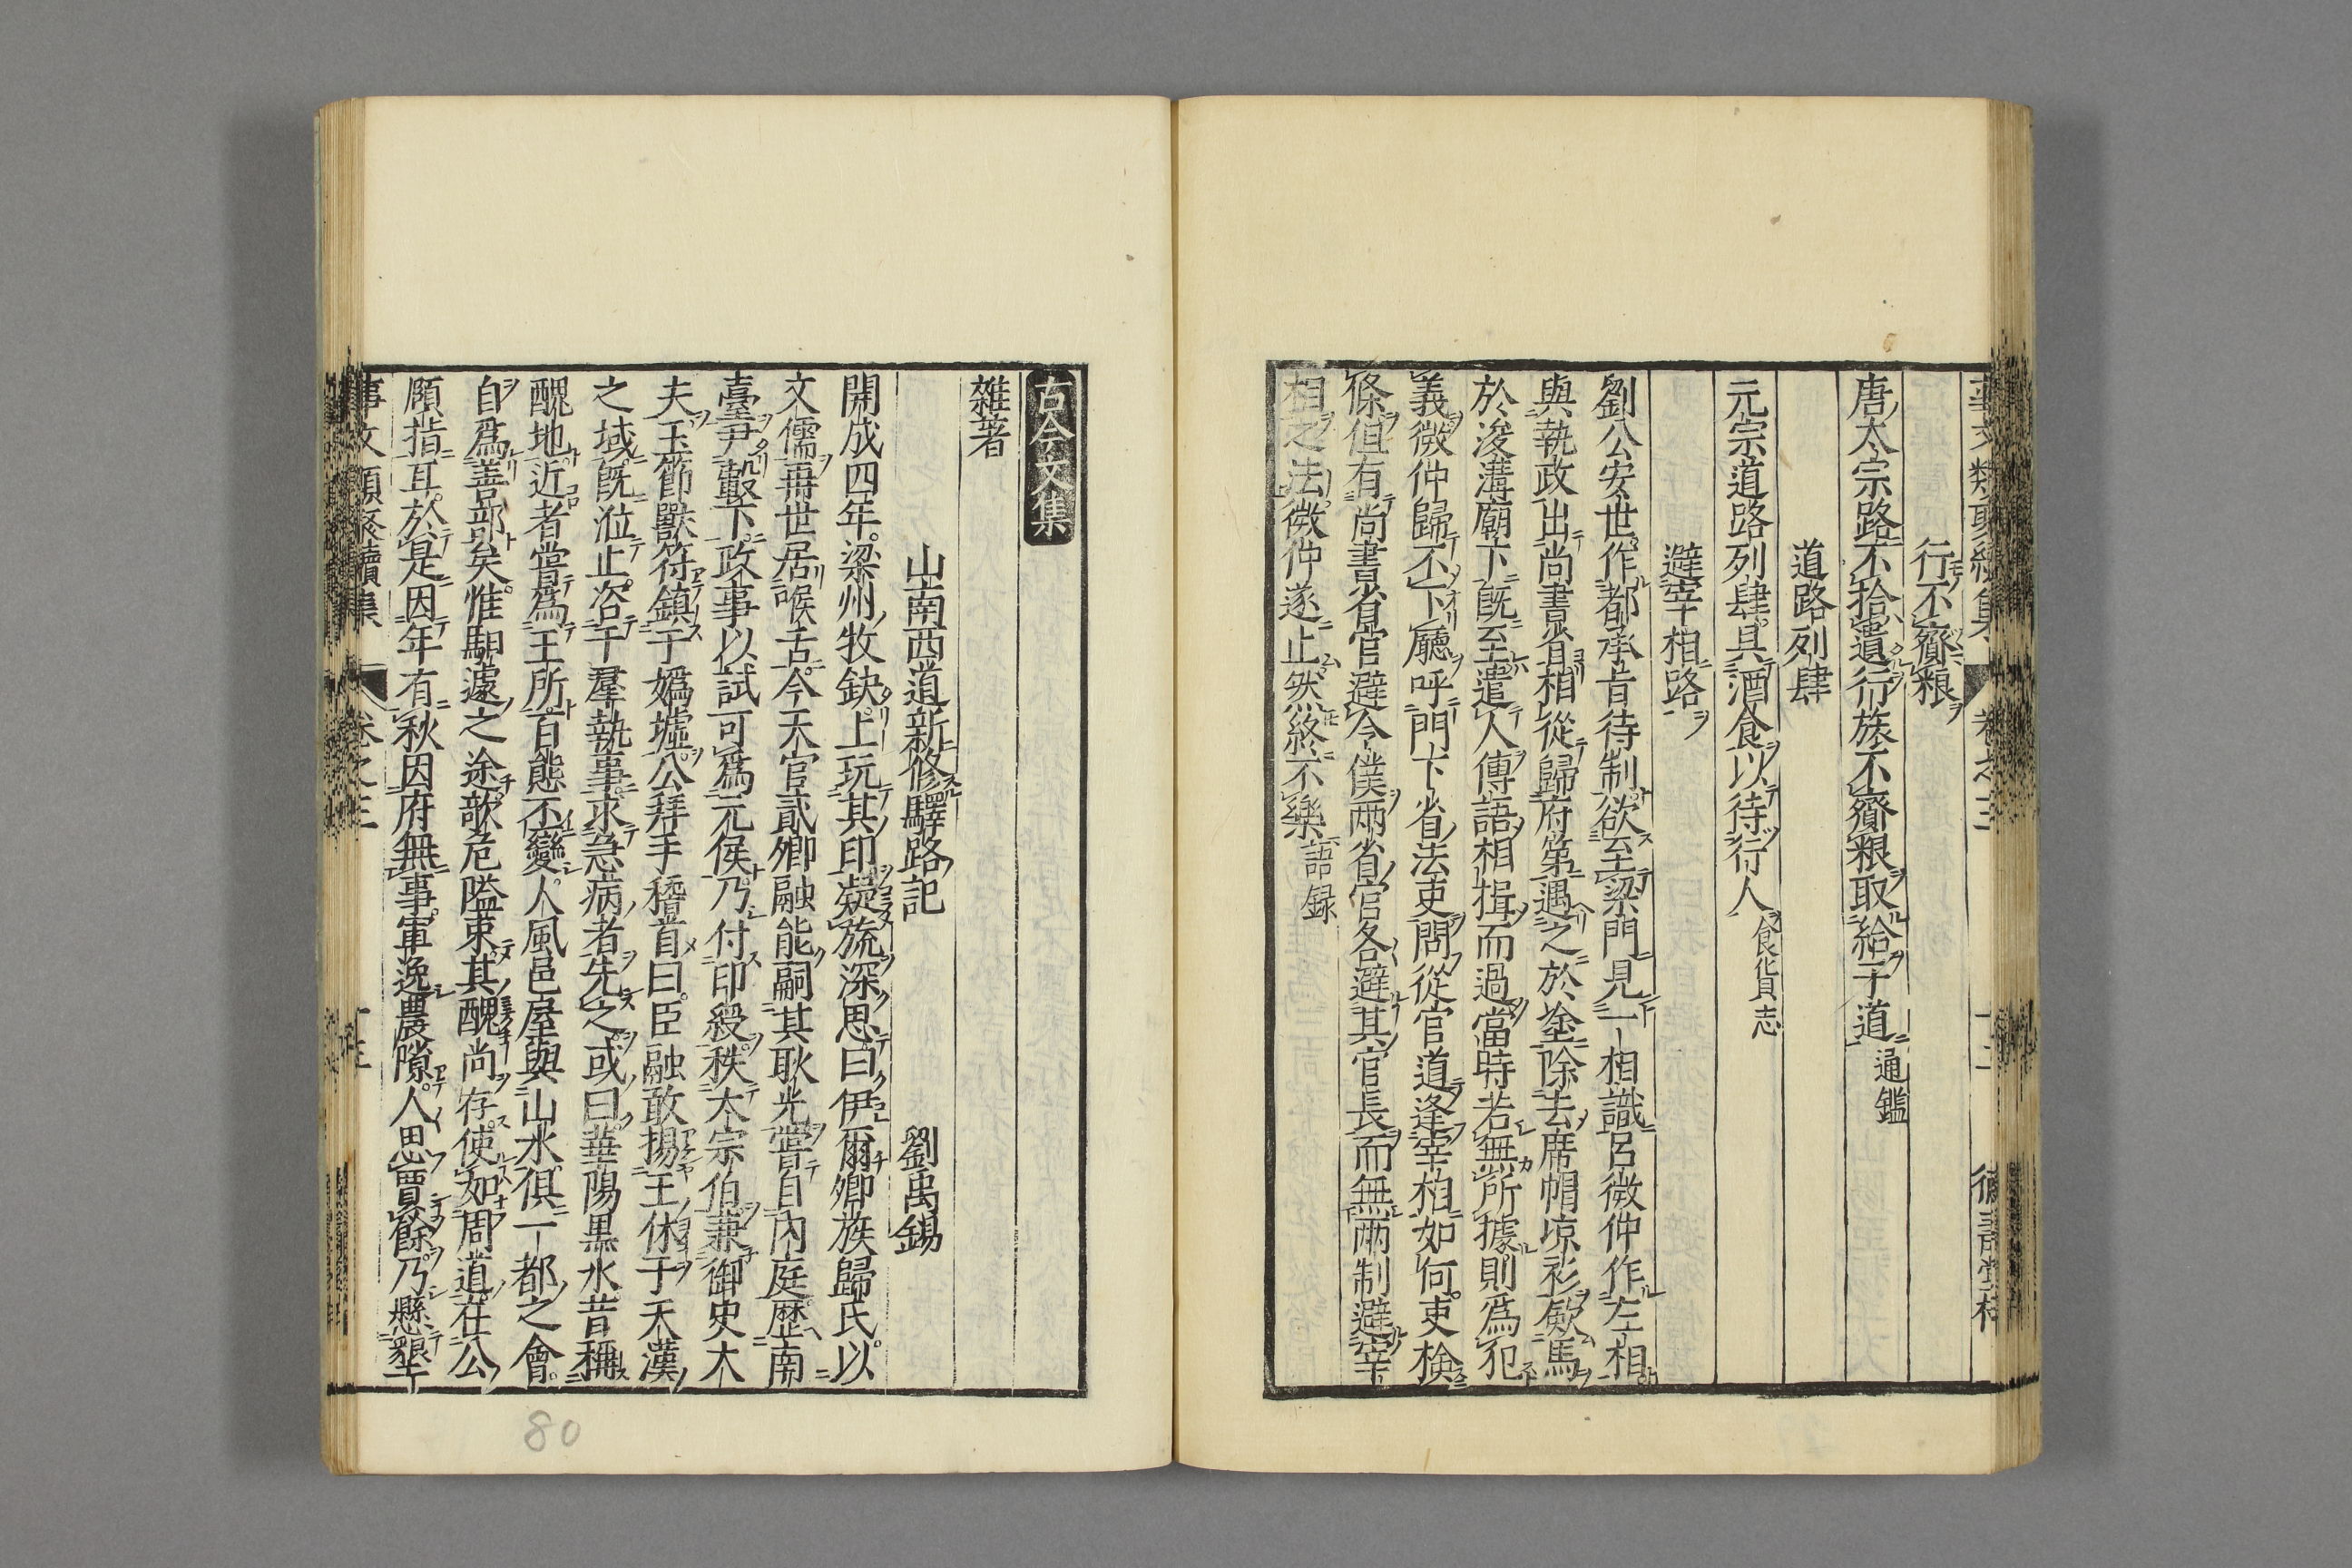 事文類聚續集 卷之三 十二 德壽堂梓
行不齎粮
唐太宗路不拾遺行旅不齎粮取給于道 通鑑
道路列肆
元宗道路列肆具酒食以待行人 食貨志
避宰相路
劉公安世作都承旨待制欲至梁門見一相識呂微仲作左相
與執政出尚書省相從歸府第遇之於塗除去席帽凉衫歛馬
於浚溝廟下既至遣人傳語相揖而過當時若無所據則爲犯
義微仲歸不下廳呼門下省法吏問從官道逢宰相如何吏檢
條但有尚書省官避令僕兩省官各避其官長而無兩制避宰
相之法微仲遂止然終不樂 語録
古今文集
雜著
山南西道新修驛路記 劉禹錫
開成四年梁州牧缺上玩其印凝旒深思曰伊爾卿族歸氏以
文儒再世居喉舌今天官貳卿融能嗣其耿光嘗自内庭歷南
臺尹轂下政事以試可爲元侯乃付印綬秩太宗伯兼御史大
夫玉節獸符鎮于嬀墟公拜手稽首曰臣融敢揚王休于天漢
之域既涖止咨于羣執事求急病者先之或曰華陽黒水昔稱
醜地近者嘗爲王所百態丕變人風邑屋與山水俱一都之會
自爲善部矣惟馹遽之途欹危隘束其醜尚存使如周道在公
頤指耳於是因年有秋因府無事軍逸農隙人思賈餘乃懸墾
事文類聚續集 卷之三
80